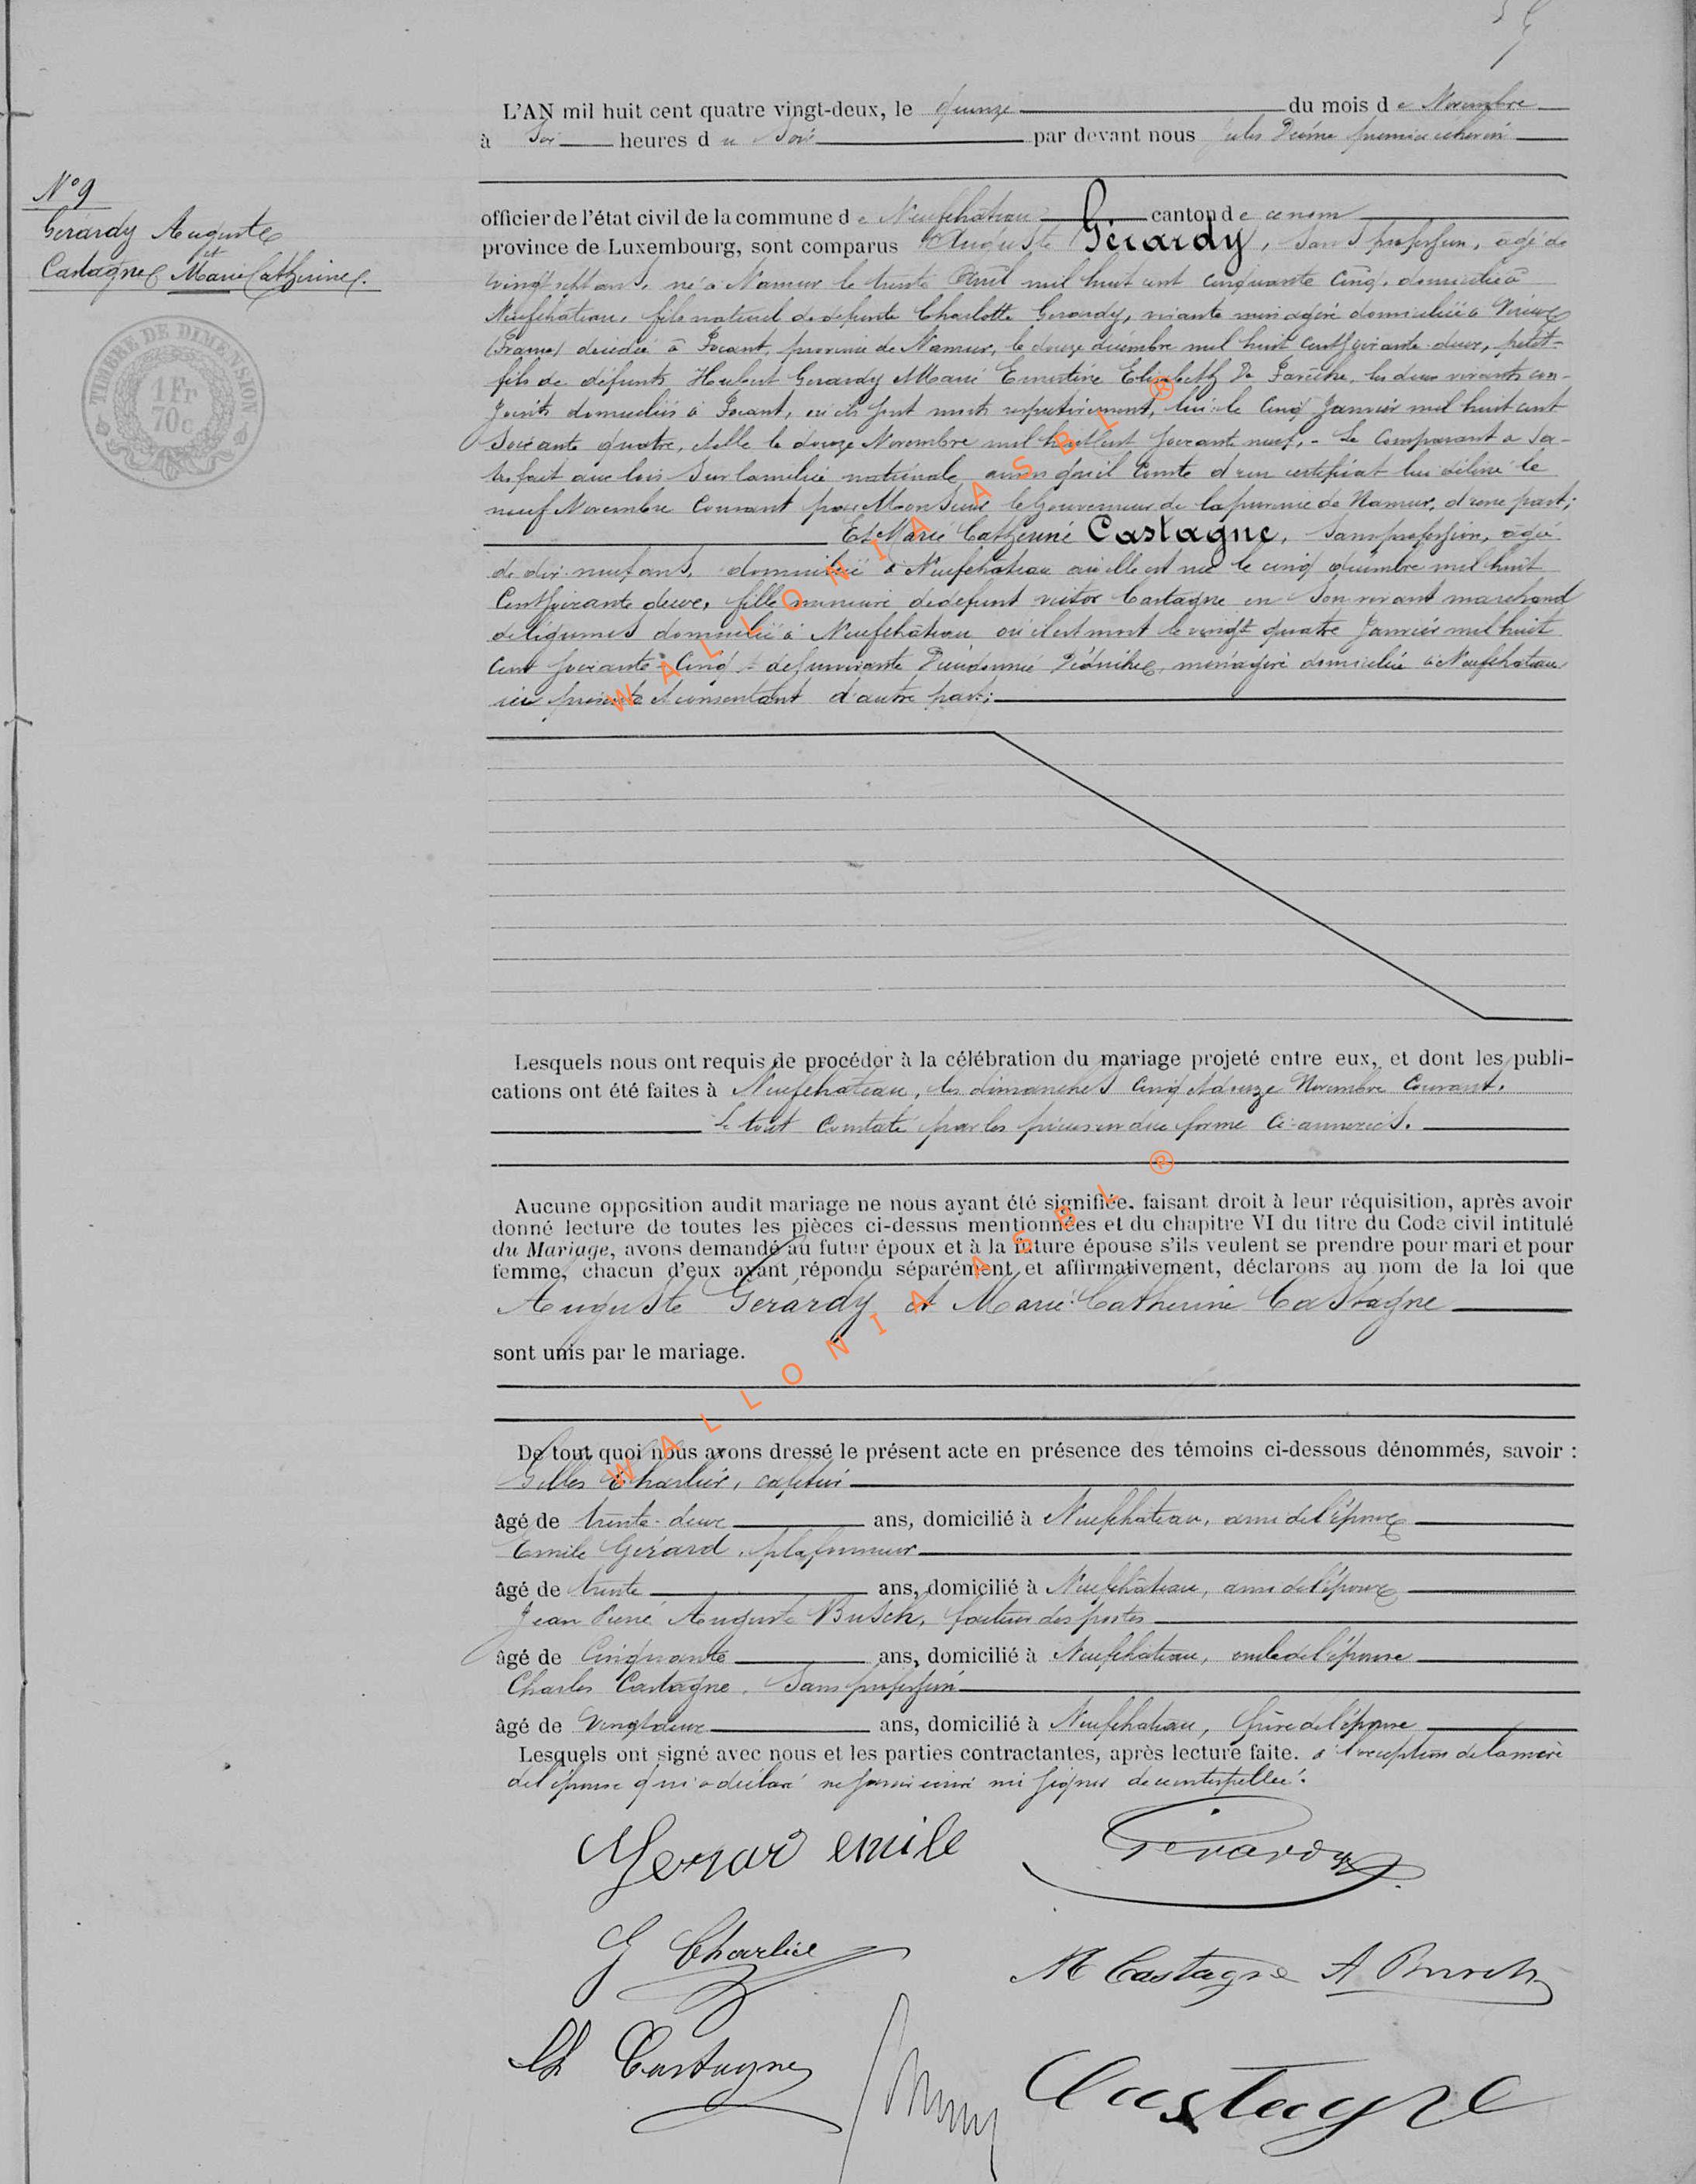 L'AN mil huit cent quatre vingt-deux, le quinze du mois de Novembre
à Six heures du Soir par devant nous Jules premier échevin
N° 9
Gérardy Auguste
et
Castagne Marie Catherine.
TIMBRE DE DIMENSION
1 Fr
70c
officier de l'état civil de la commune de Neufchâteau canton de ce nom
province de Luxembourg, sont comparus Auguste Gérardy, Sans profession, âgé de
vingt sept ans, né à Namur le trente Avril mil huit cent cinquante cinq, domicilié à
Neufchâteau, fils naturel de defunte Charlotte Gerardy, vivante ménagère domiciliée à
(France) décédée à Focant, province de Namur, le douze décembre mil huit cent soixante-deux, petit-
fils de défunts Hubert Gerardy et Marie Ernestine Elisabeth De les deux vivants con-
joints domiciliés à Focant, où ils sont morts respectivement, lui le cinq Janvier mil huit cent
Soixante quatre, et elle le douze Novembre mil huit cent soixante neuf. - Le Comparant a Sa-
tisfait aux lois Sur la milice nationale ainsi qu'il conste d'un certificat lui délivré le
neuf Novembre Courant par Monsieur le Gouverneur de la province de Namur, d'une part;
Et Marie Catherine Castagne, Sans profession, âgée
de dix-neuf ans, domiciliée à Neufchâteau où elle est née le cinq décembre mil huit
Cent soixante deux, fille mineure de defunt victor Castagne en Son vivant marchand
de légumes domicilié à Neufchâteau où il est mort le vingt quatre Janvier mil huit
cent soixante-Cinq et de survivante Dieudonnée ménagère domiciliée à Neufchâteau
ici présente et consentant d'autre part;
Lesquels nous ont requis de procéder à la célébration du mariage projeté entre eux, et dont les publi-
cations ont été faites à Neufchâteau, les dimanches cinq et douze Novembre Courant.
Le tout Constaté par les pièces en due forme Ci-annexées.
Aucune opposition audit mariage ne nous ayant été signifiée, faisant droit à leur réquisition, après avoir
donné lecture de toutes les pièces ci-dessus mentionnées et du chapitre VI du titre du Code civil intitulé
du Mariage, avons demandé au futur époux et à la future épouse s'ils veulent se prendre pour mari et pour
femme, chacun d'eux ayant répondu séparément et affirmativement, déclarons au nom de la loi que
Auguste Gerardy et Marie-Catherine Castagne
sont unis par le mariage.
De tout quoi nous avons dressé le présent acte en présence des témoins ci-dessous dénommés, savoir :
Gilles Charlier, cafetier
âgé de trente-deux ans, domicilié à Neufchâteau, ami de l'époux
Emile Gérard, plafonneur
âgé de trente ans, domicilié à Neufchâteau, ami de l'époux
Jean Auguste Busch, facteur des postes
âgé de Cinquante ans, domicilié à Neufchâteau, oncle de l'épouse
Charles Castagne, Sans profession
âgé de vingt deux ans, domicilié à Neufchâteau, frère de l'épouse
Lesquels ont signé avec nous et les parties contractantes, après lecture faite. à l'exception de la mère
de l'épouse qui a déclaré ne savoir écrire ni signer de ce interpellée.
Gerard emile Gérardy
G Charlier
M Castagne A Busch
Ch Castagne
Castagne
WALLONIA ASBL ®
WALLONIA ASBL ®